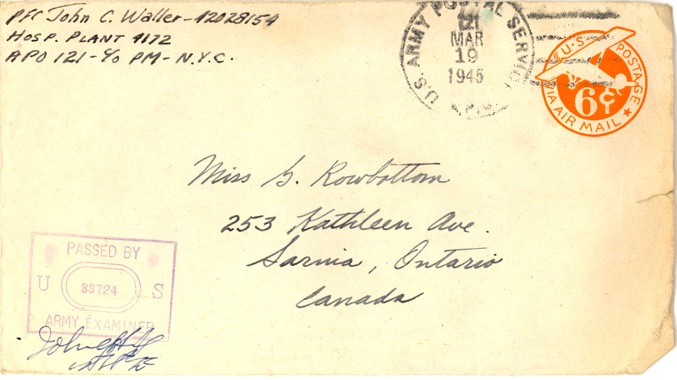 PFC John C. Waller - 12028154
HOSP. PLANT 4172
APO 121 - c/o PM - N.Y.C.
U.S. ARMY POSTAL SERVICE
121
MAR
19
1945
U.S. POSTAGE
6¢
VIA AIR MAIL
Miss G. Rowbottom
253 Kathleen Ave.
Sarnia, Ontario
Canada
PASSED BY
U 33724 S
ARMY EXAMINER